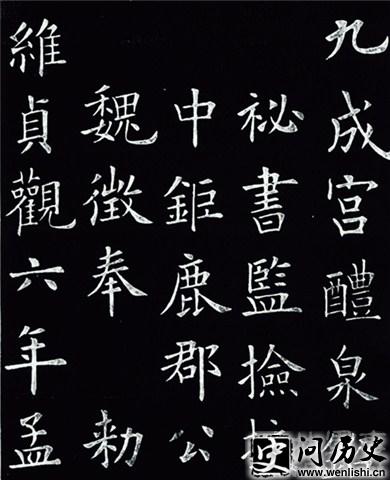 九成宫醴泉
祕書監撿
中鉅鹿郡公
魏徵奉 勑
維貞觀六年孟
史问历史
www.wenlishi.cn